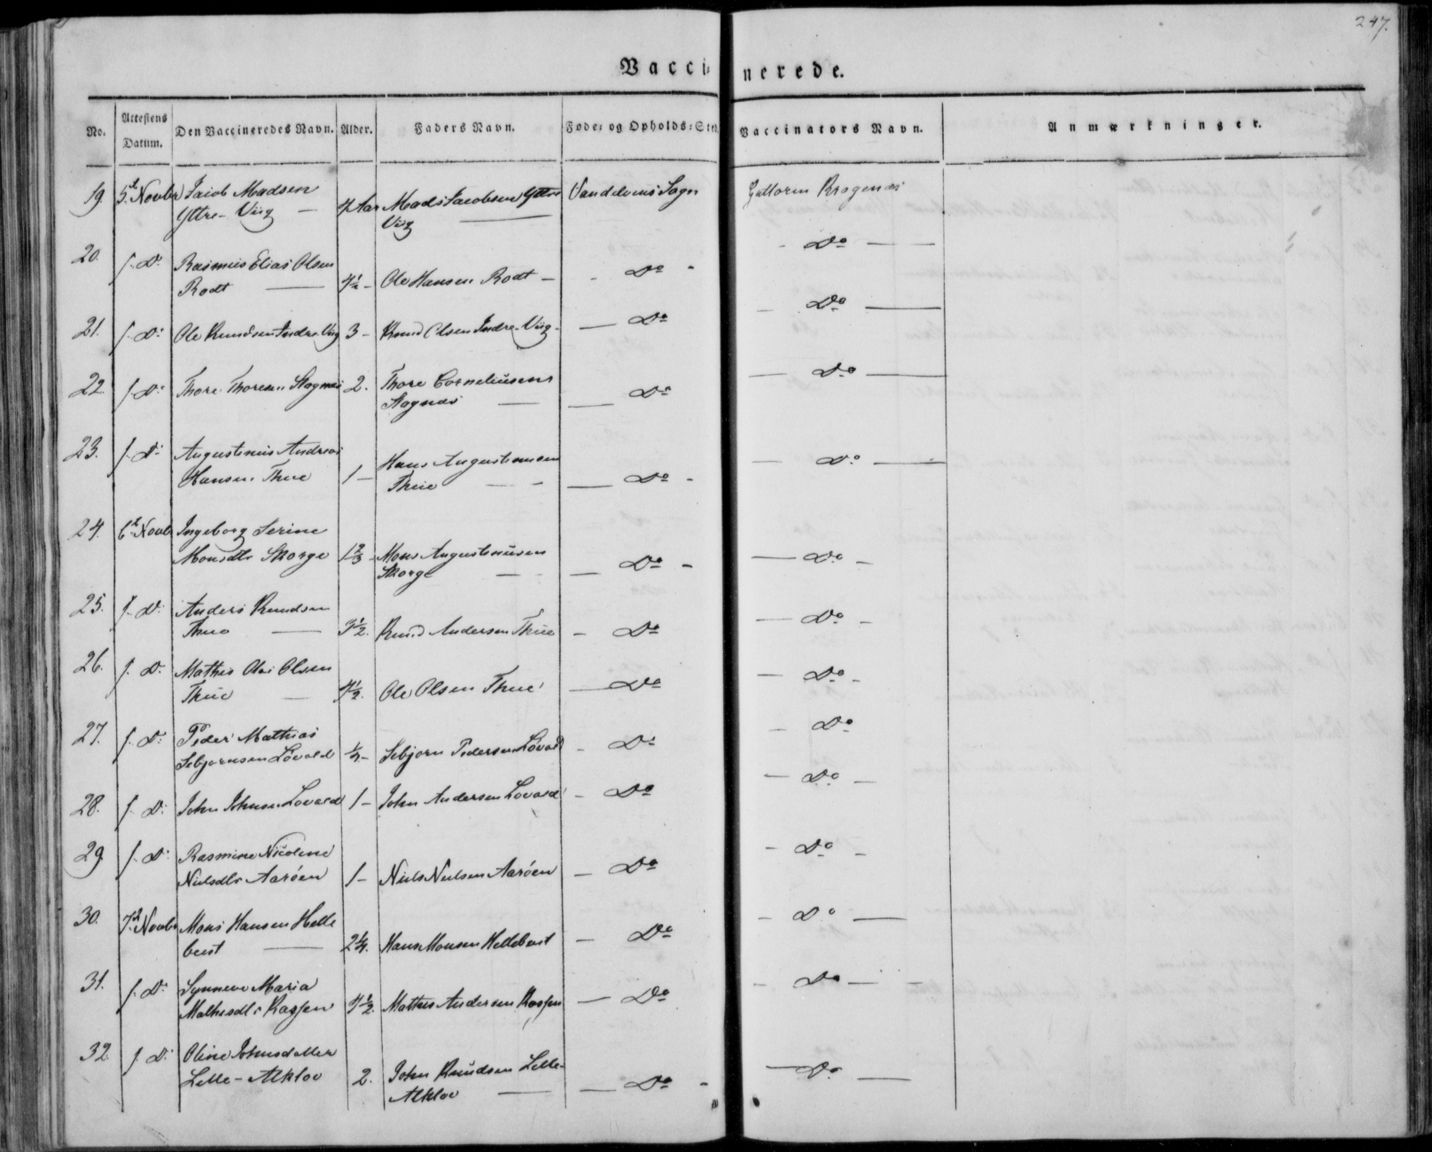 247.
Vaccinerede.
No. Attestens Datum. Den Vaccineredes Navn. Alder. Faders Navn. Føde- og Opholds-Sted Vaccinators Navn. Anmærkninger.
19. 5t Novbr Jacob Madsen 4 Aar Mads Jacobsen Yttre Vanelvens Sogn
Yttre-Vig — Vig —
20. f. Do Rasmus Elias Olsen Do
Rodt — Ole Hansen Rodt — Do
21. f. Do Ole Knudsen Indre Vig 3 — Knud Olsen Indre-Vig — Do Do
22. f. Do Thore Thoresen 2. Thore Corneliusens Do Do
23. f. Do Augustinus Andreas Hans Augustinusen Do
Hansen Thue 1 — Thue — Do
24. 6t Novbr Ingeborg Serine
Monsdtr Skorge 1 2/3 Mons Augustinusen Do
Skorge — Do
25. f. Do Anders Knudsen Do
Thue — 3 1/2 Knud Andersen Thue — Do
26. f. Do Mathis Olai Olsen Do
Thue — 4 1/2. Ole Olsen Thue — Do
27. f. Do Peder Mathias Do
Sebjornsen Lovold Sebjorn Pedersen Lovold — Do
28. f. Do John Johnsen Lovold 1 — John Andersen Lovold — Do Do
29. f. Do Rasmine Nicoline Do
Nielsdtr Aarøen 1 — Niels Nielsen Aarøen — Do
30. 7d Novbr Mons Hansen Helle Do
bust — 2 1/4. Hans Monsen Hellebust — Do
31. f. Do Synneve Maria Do
Mathisdtr 4 1/2. Mathis Andersen Do
32. f. Do Oline Johnsdatter Do
Lelle- 2. John Knudsen Lelle- Do